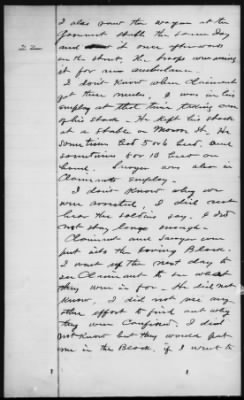 I also saw the wagon at the
Government stable the same day
and it once afterwards
on the street, the troops were using
it for an ambulance.
I don't know when Claimant
got these mules. I was in his
employ at that time taking care
of his stock. He kept his stock
at a stable on Monroe St. He
sometimes had 5 or 6 head, and
sometimes 8 or 10 head on
hand. Sawyer was also in
Claimants employ.
I don't know why we
were arrested, I did not
hear the soldiers say. I did
not stay long enough.
Claimant and Sawyer were
put into the Irving Block.
I went up the next day to
see Claimant to see what
they were in for. He did not
know, I did not see any
other effort to find out why
they were confined. I did
not know but they would put
me in the Block, if I went to